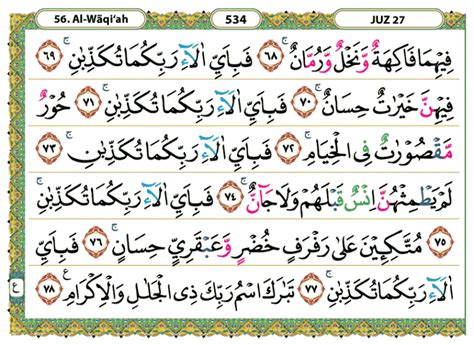 56. Al-Wāqi'ah 534 JUZ 27
فِيْهِمَا فَاكِهَةٌ وَّنَخْلٌ وَّرُمَّانٌۚ ٦٨ فَبِاَيِّ اٰلَاۤءِ رَبِّكُمَا تُكَذِّبٰنِۚ ٦٩
فِيْهِنَّ خَيْرٰتٌ حِسَانٌۚ ٧٠ فَبِاَيِّ اٰلَاۤءِ رَبِّكُمَا تُكَذِّبٰنِۚ ٧١ حُوْرٌ
مَّقْصُوْرٰتٌ فِى الْخِيَامِۚ ٧٢ فَبِاَيِّ اٰلَاۤءِ رَبِّكُمَا تُكَذِّبٰنِۚ ٧٣
لَمْ يَطْمِثْهُنَّ اِنْسٌ قَبْلَهُمْ وَلَا جَاۤنٌّۚ ٧٤ فَبِاَيِّ اٰلَاۤءِ رَبِّكُمَا تُكَذِّبٰنِۚ
٧٥ مُتَّكِـِٕيْنَ عَلٰى رَفْرَفٍ خُضْرٍ وَّعَبْقَرِيٍّ حِسَانٍۚ ٧٦ فَبِاَيِّ
اٰلَاۤءِ رَبِّكُمَا تُكَذِّبٰنِۚ ٧٧ تَبٰرَكَ اسْمُ رَبِّكَ ذِى الْجَلٰلِ وَالْاِكْرَامِ ࣖ ٧٨
ع